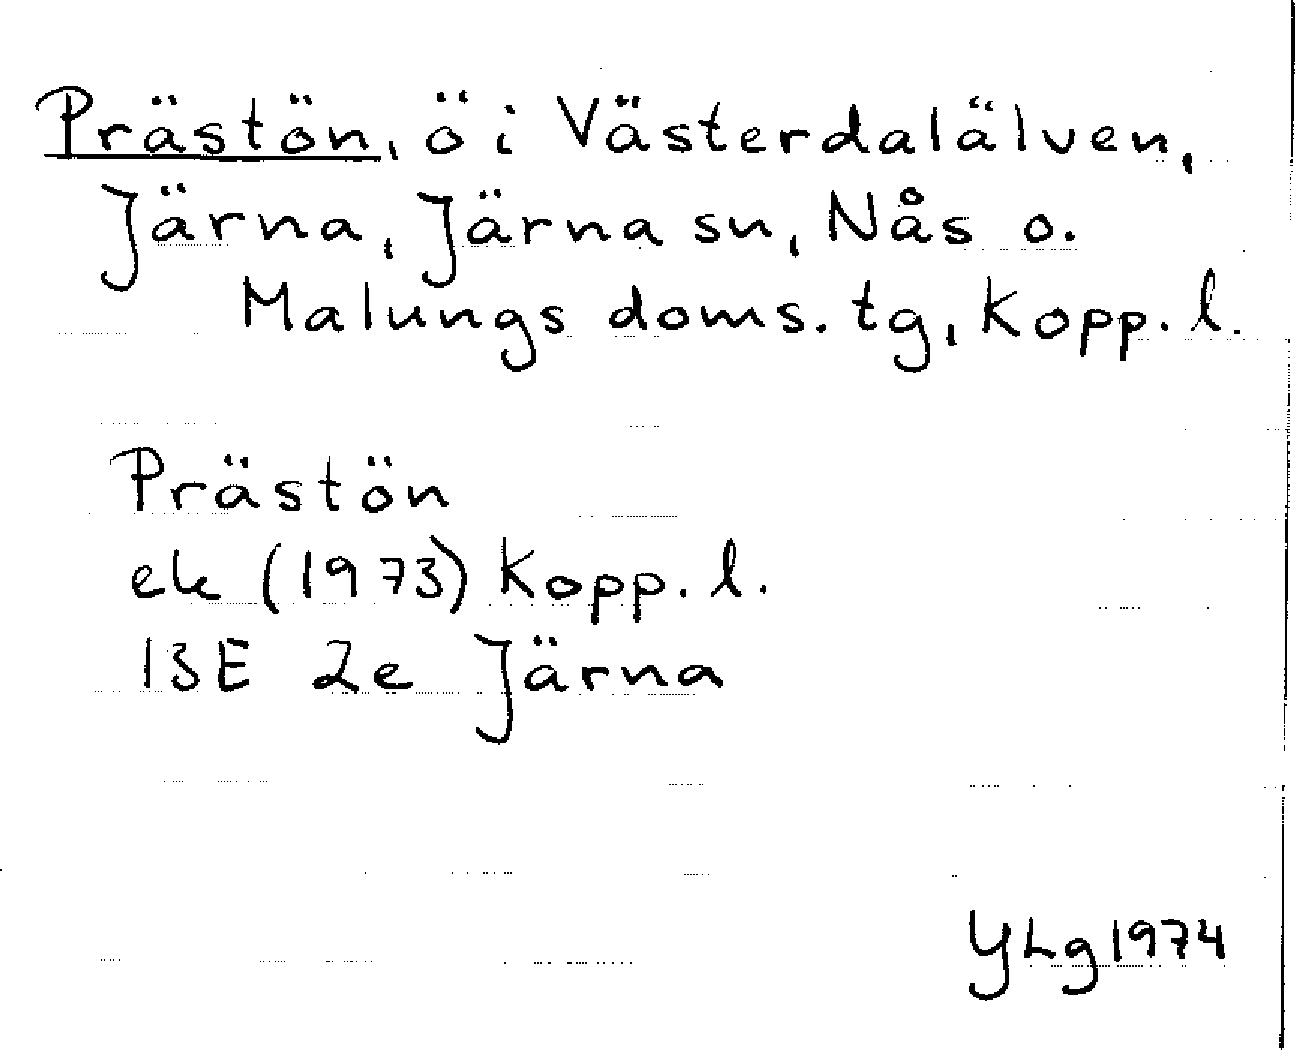 Prästön, ö i Västerdalälven,
Järna, Järna sn, Nås o.
Malungs doms. tg, Kopp. l.
Prästön
ek (1973) Kopp. l.
13E 2e Järna
YLg 1974